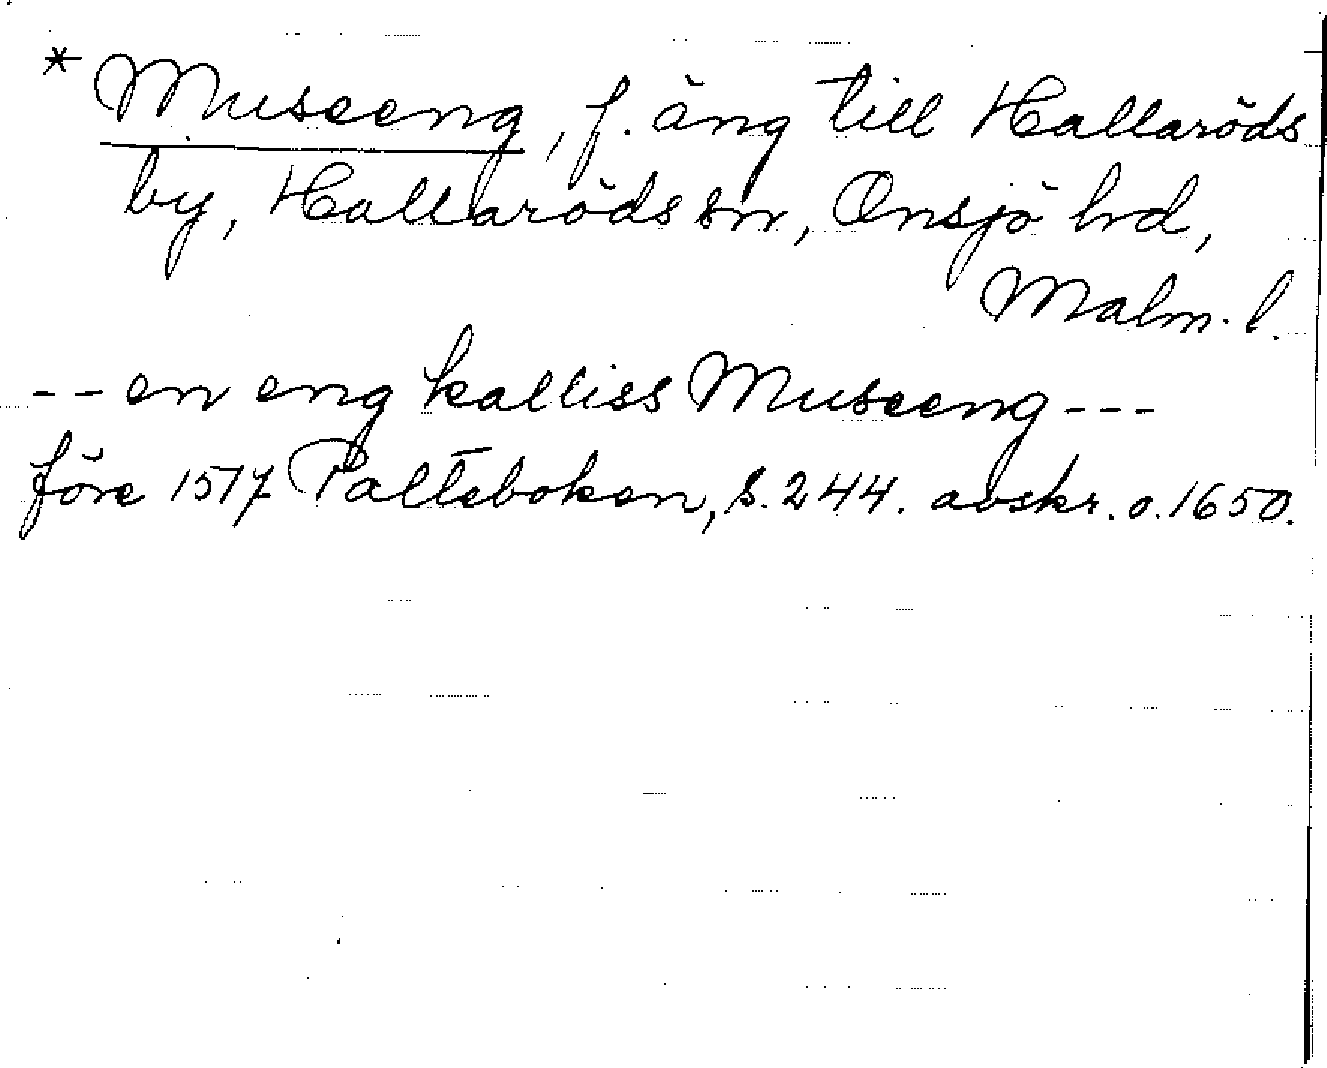 * Museeng, f. äng till Hallaröds
by, Hallaröds sn, Onsjö hd,
Malm. l.
-- en eng kalliss Museeng ---
före 1517 Palteboken, s. 244. avskr. o. 1650.